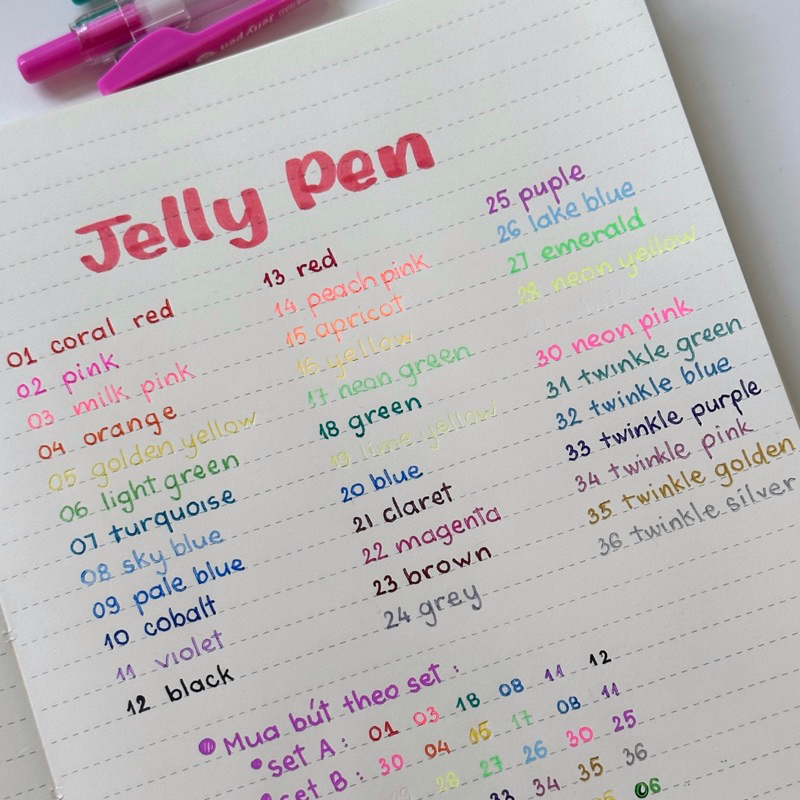 Jelly pen
Jelly Pen
01 coral red
02 pink
03 milk pink
04 orange
05 golden yellow
06 light green
07 turquoise
08 sky blue
09 pale blue
10 cobalt
11 violet
12 black
13 red
14 peach pink
15 apricot
16 yellow
17 neon green
18 green
19 lime yellow
20 blue
21 claret
22 magenta
23 brown
24 grey
25 puple
26 lake blue
27 emerald
28 neon yellow
30 neon pink
31 twinkle green
32 twinkle blue
33 twinkle purple
34 twinkle pink
35 twinkle golden
36 twinkle silver
Mua bút theo set :
set A : 01 03 18 08 11 12
set B : 30 04 05 17 08 11
28 27 26 30 25
33 34 35 36
06